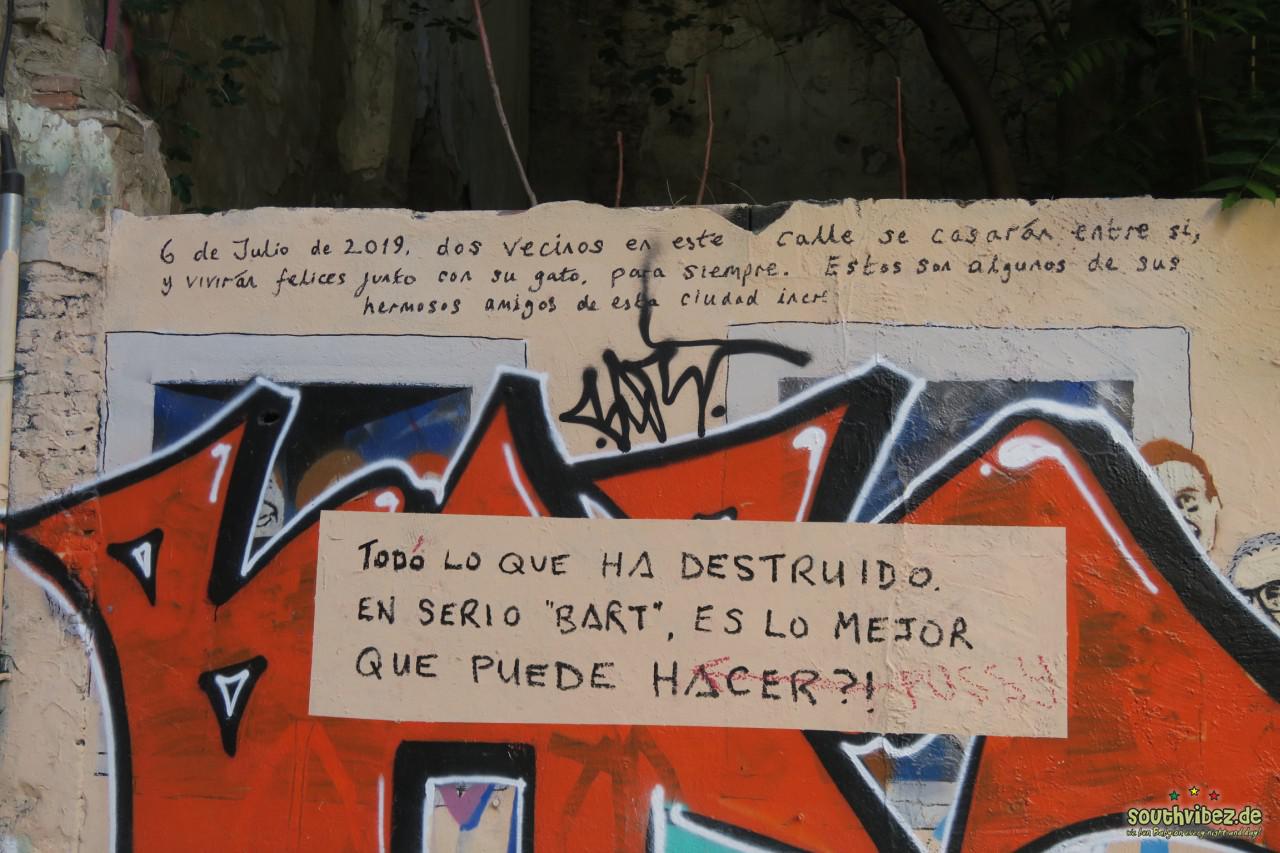 6 de Julio de 2019, dos vecinos en este calle se casarán entre si,
y vivirán felices junto con su gato, para siempre. Estos son algunos de sus
hermosos amigos de esta ciudad incre
TODÓ LO QUE HA DESTRUIDO.
EN SERIO "BART", ES LO MEJOR
QUE PUEDE HACER?! PUSSY
southvibez.de